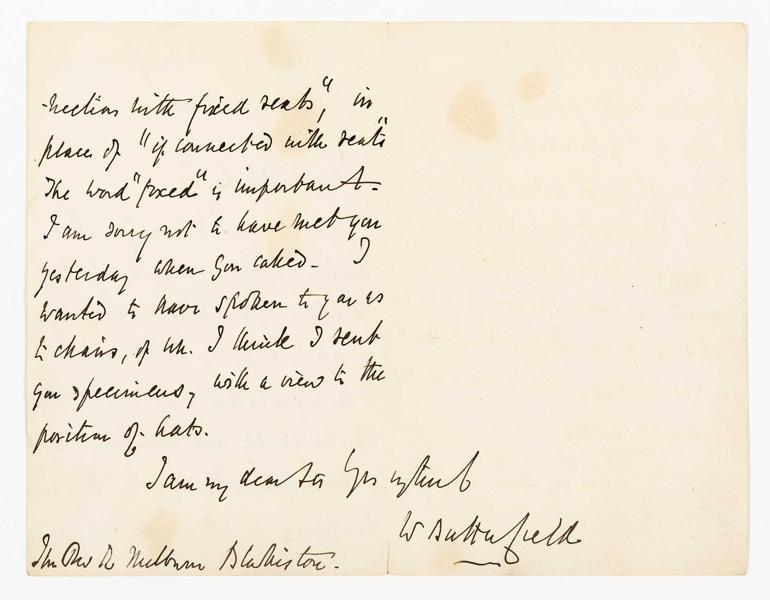 -nection with fixed seats", in
place of "if connected with seats"
The word "fixed" is important -
I am sorry not to have met you
yesterday when you called - I
wanted to have spoken to you as
to chairs, of wh. I think I sent
you specimens, with a view to the
position of hats.
I am my dear Sir Yrs
W Butterfield
The Rev R Milburn Blakiston.